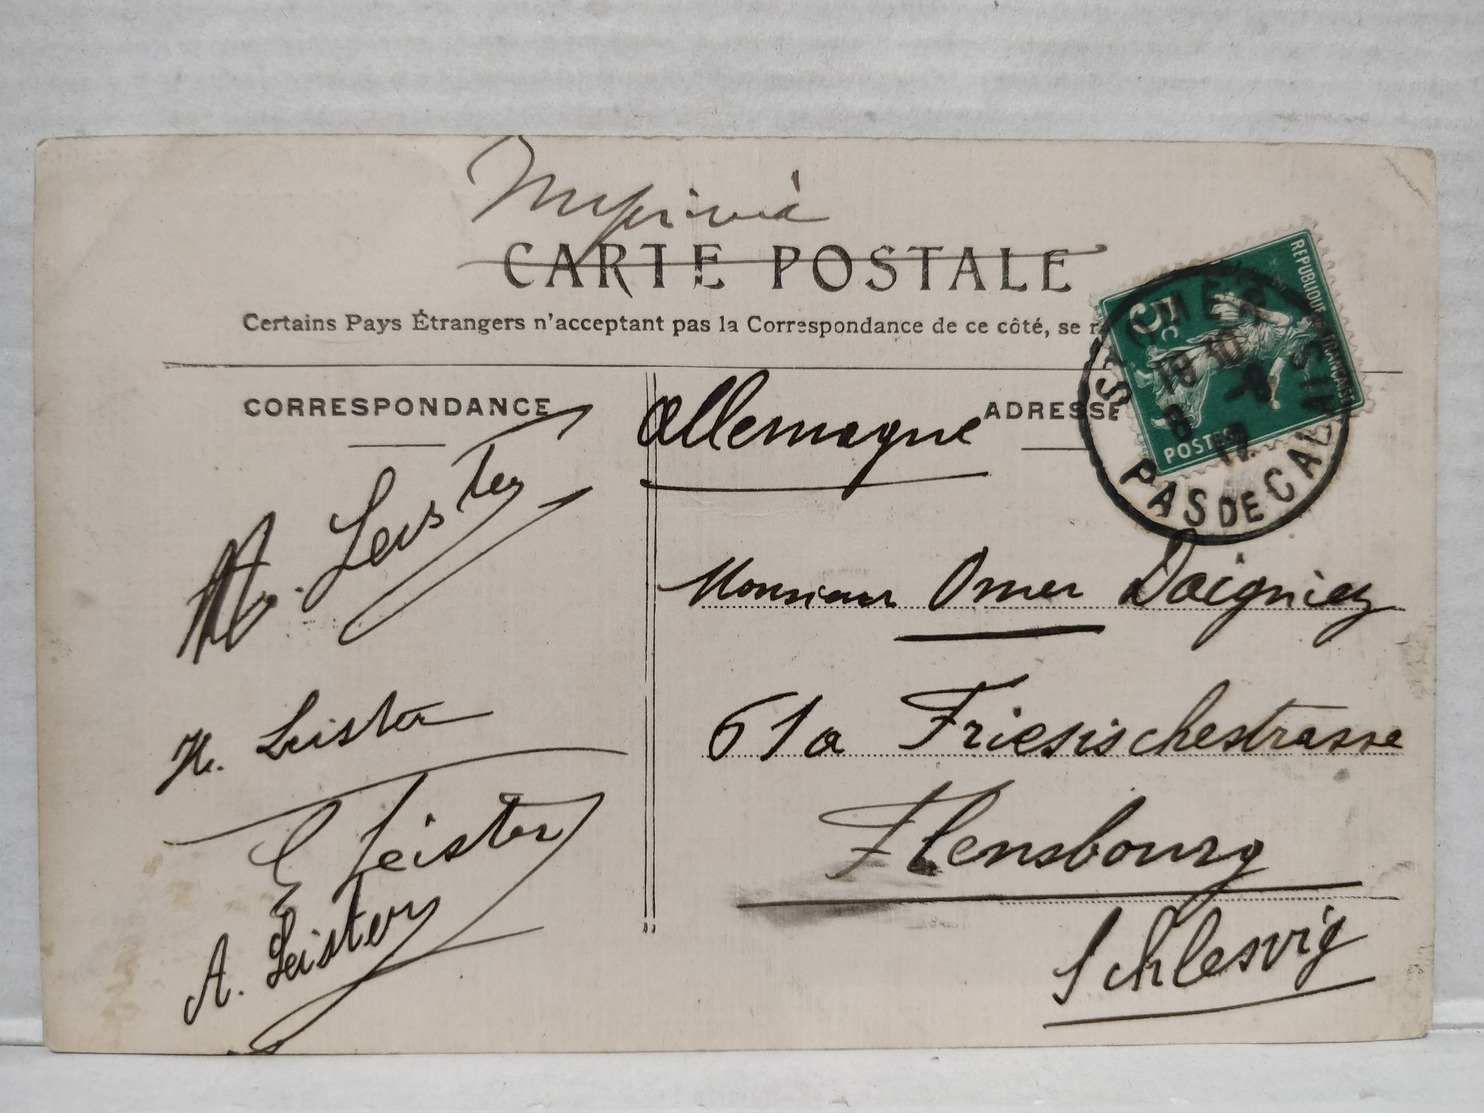 Imprimé
CARTE POSTALE
Certains Pays Étrangers n'acceptant pas la Correspondance de ce côté, se r
CORRESPONDANCE
ADRESSE
Allemagne
REPUBLIQUE FRANÇAISE
5c
POSTES
ST OMER
18 30
8
PAS DE CALAIS
M. Leister
H. Leister
E Leister
A. Leister
Monsieur Omer Daigniez
61a Friesischestrasse
Flensbourg
Schlesvig